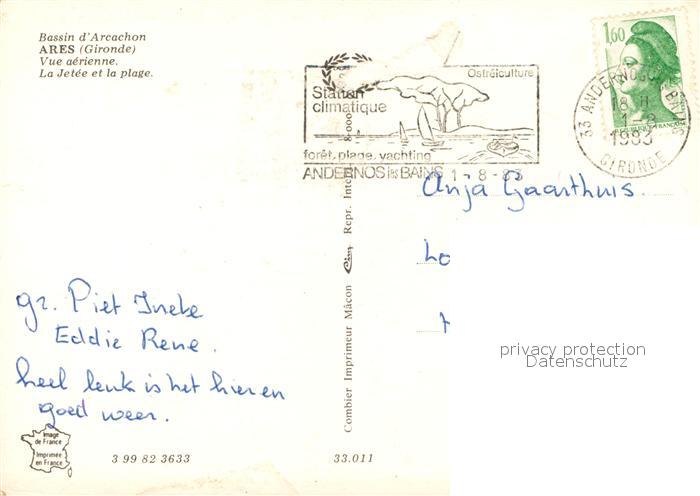 Bassin d'Arcachon
ARES (Gironde)
Vue aérienne.
La Jetée et la plage.
Ostréiculture
Station
climatique
forêt, plage, yachting
ANDERNOS les BAINS 1-8-83
1,60
33 ANDERNOS LES BAINS
18 H
1-8
1983
GIRONDE
Anja Gaarthuis.
Lo
gr. Piet Ineke
Eddie Rene.
heel leuk is het hier en
goed weer.
Combier Imprimeur Mâcon Cim Repr. Inter
privacy protection
Datenschutz
Image
de France
Imprimée
en France
3 99 82 3633
33.011